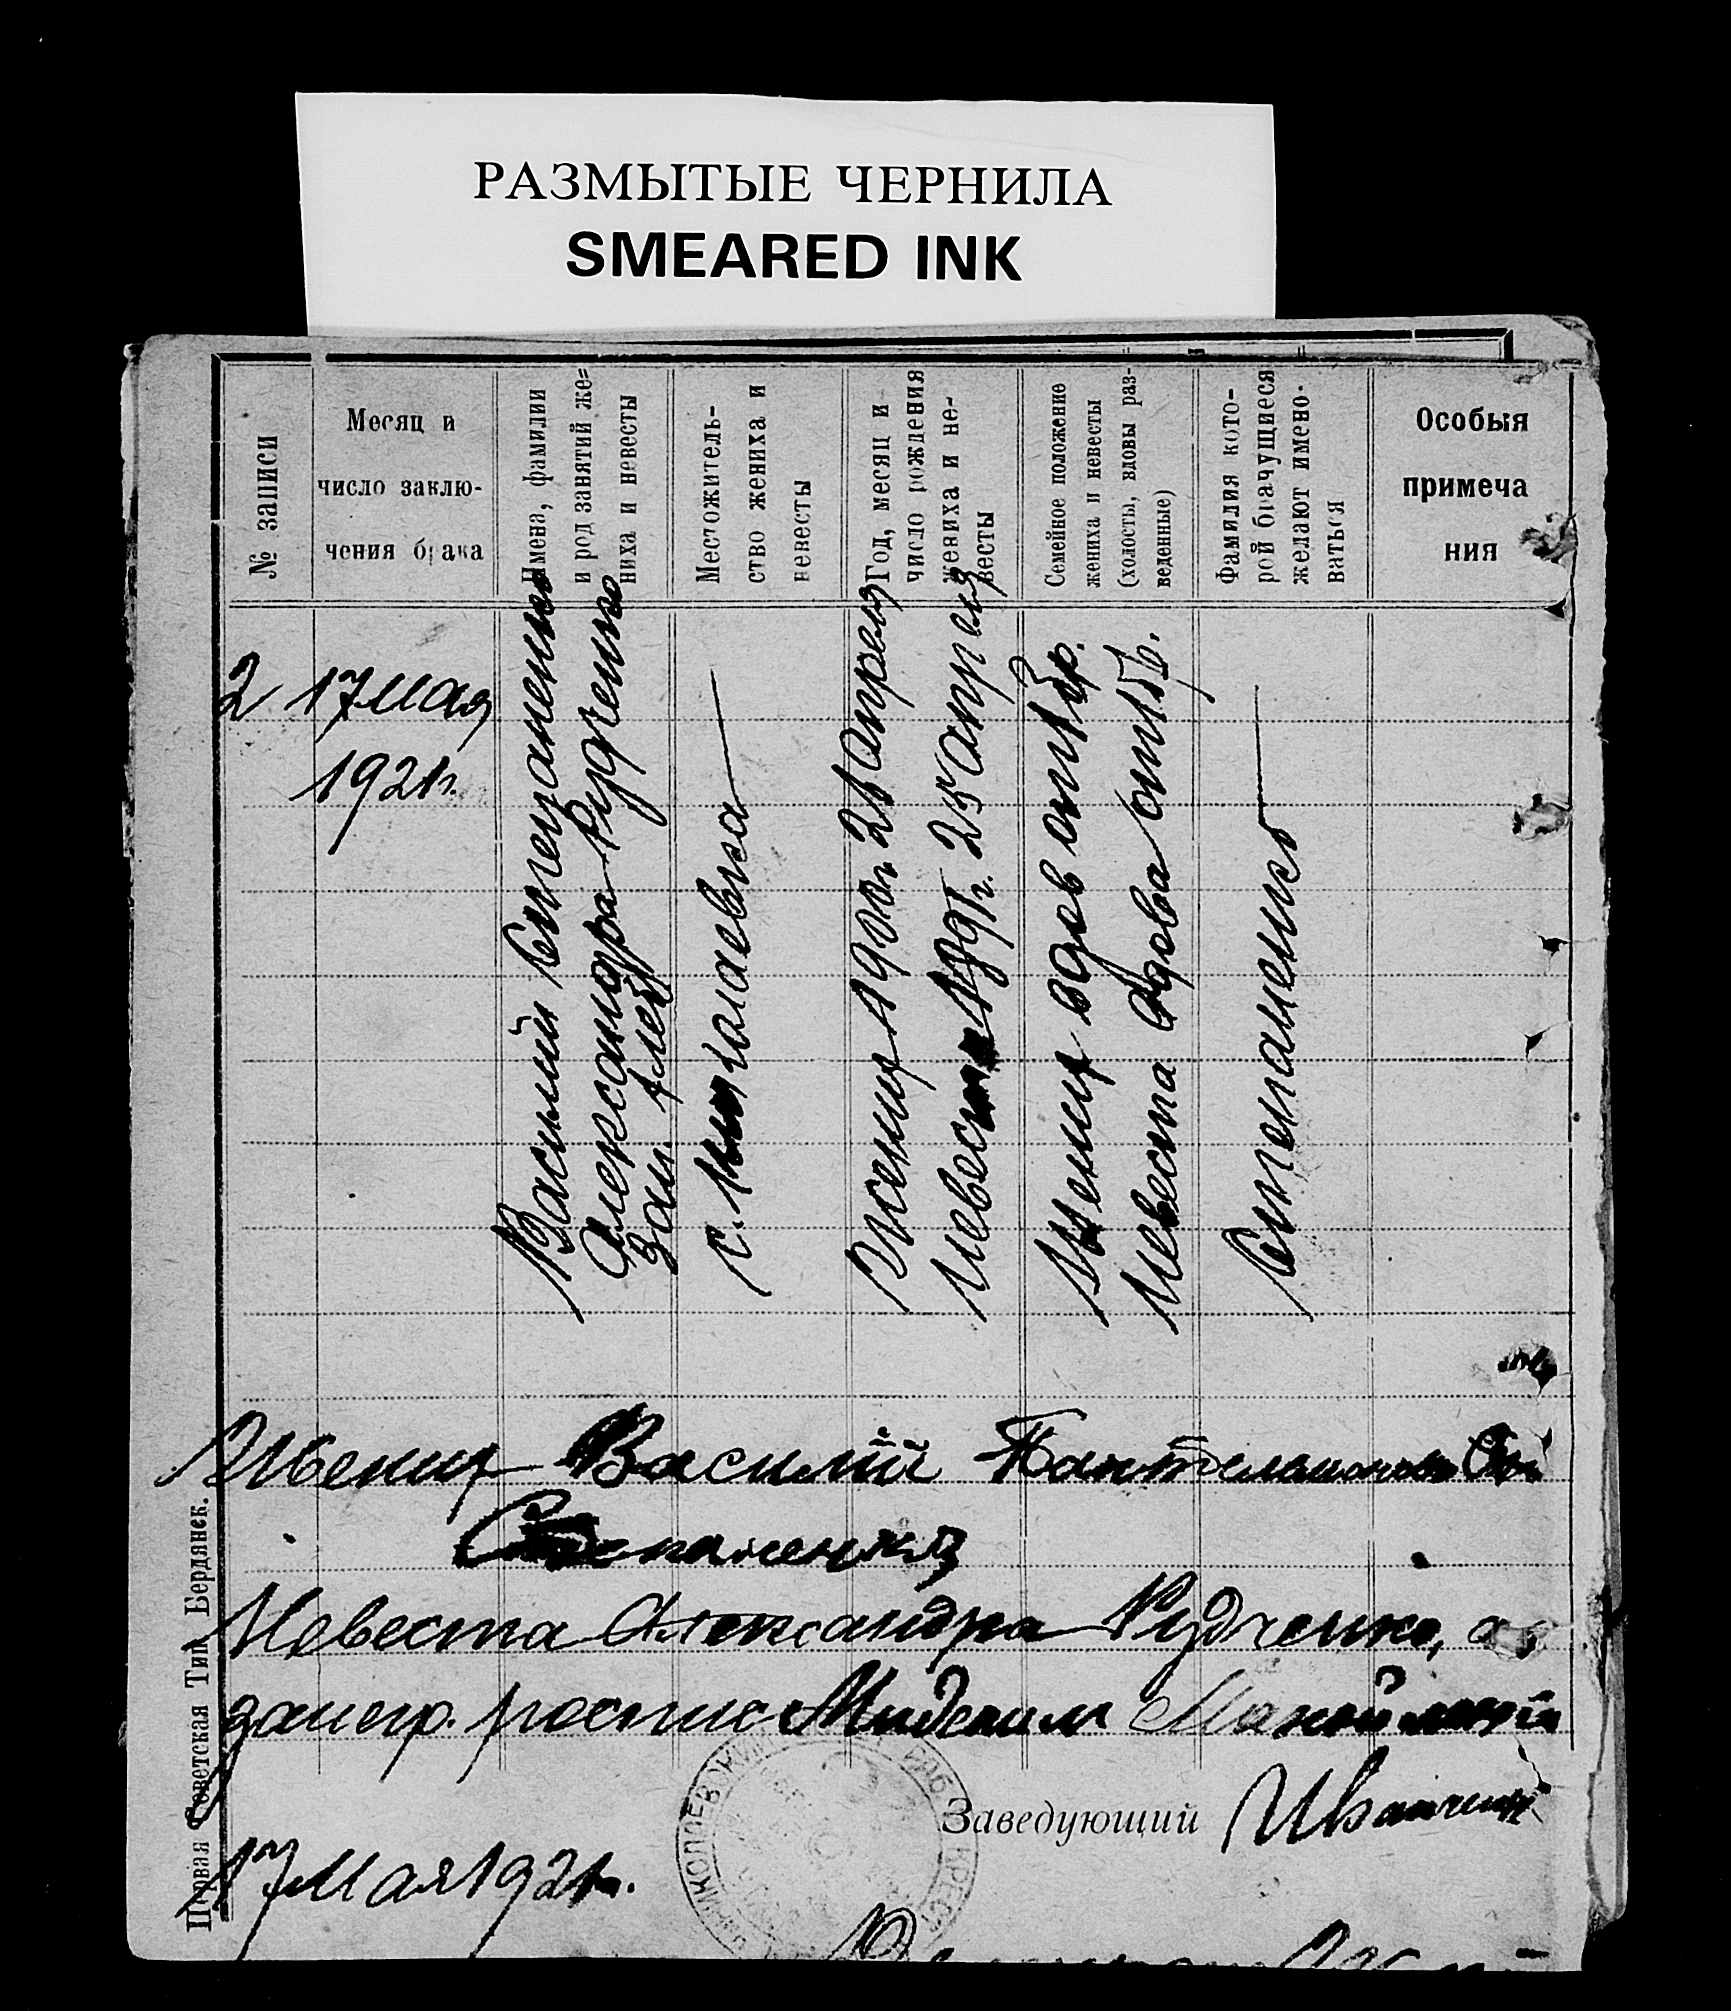 РАЗМЫТЫЕ ЧЕРНИЛА
SMEARED INK
№ записи
Месяц и
число заклю-
чения брака
Имена, фамилии
и род занятий же=
ниха и невесты
Местожитель-
ство жениха и
невесты
Год, месяц и
число рождения
жениха и не-
весты
Семейное положение
жениха и невесты
(холосты, вдовы раз-
веденные)
Фамилия кото-
рой брачущиеся
желают имено-
ваться
Особыя
примеча
ния
2
17 мая
1921г.
Василий Степаненко
Александра Рудченко
Зан. хлеб
с. Николаевка
Жених 1900г. 21 апреля
Невеста 25 апреля
Жених вдов
Невеста вдова
Степаненко
Жених Василий
Степаненко
Невеста Александра Рудченко, а
17 мая 1921г.
Заведующий
Первая Советская Тип. Бердянск.